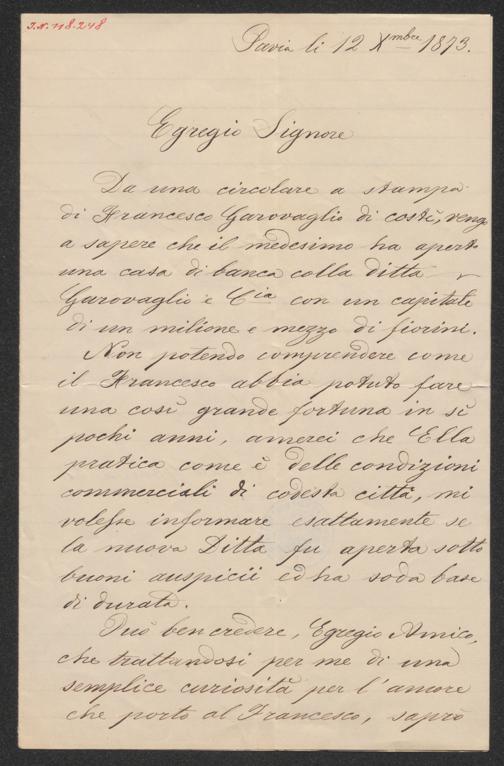 I.N. 118.248
Pavia li 12 Xmbre 1873.
Egregio Signore
Da una circolare a stampa
di Francesco Garovaglio di costì, vengo
a sapere che il medesimo ha aperto
una casa di banca colla ditta
Garovaglio e Cia con un capitale
di un milione e mezzo di fiorini.
Non potendo comprendere come
il Francesco abbia potuto fare
una così grande fortuna in sì
pochi anni, amerei che Ella
pratica come è delle condizioni
commerciali di codesta città, mi
volesse informare esattamente se
la nuova Ditta fu aperta sotto
buoni auspicii ed ha soda base
di durata.
Può ben credere, Egregio Amico,
che trattandosi per me di una
semplice curiosità per l'amore
che porto al Francesco, saprò